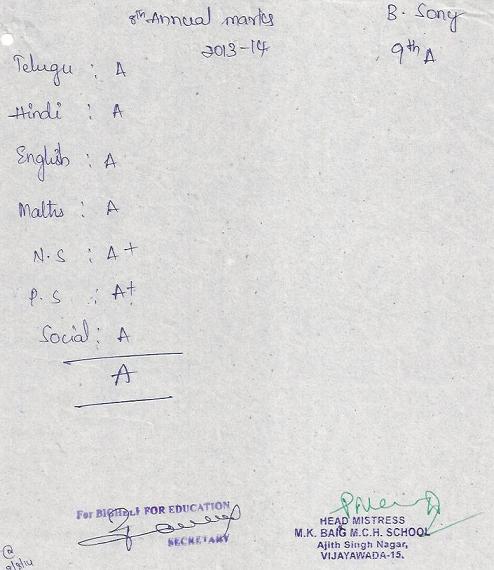 8th Annual marks
B. Sony
2013-14
9th A
Telugu : A
Hindi : A
English : A
Maths : A
N.S : A+
P.S : A+
Social : A
A
For BIGHELP FOR EDUCATION
SECRETARY
HEAD MISTRESS
M.K. BAIG M.C.H. SCHOOL
Ajith Singh Nagar,
VIJAYAWADA-15.